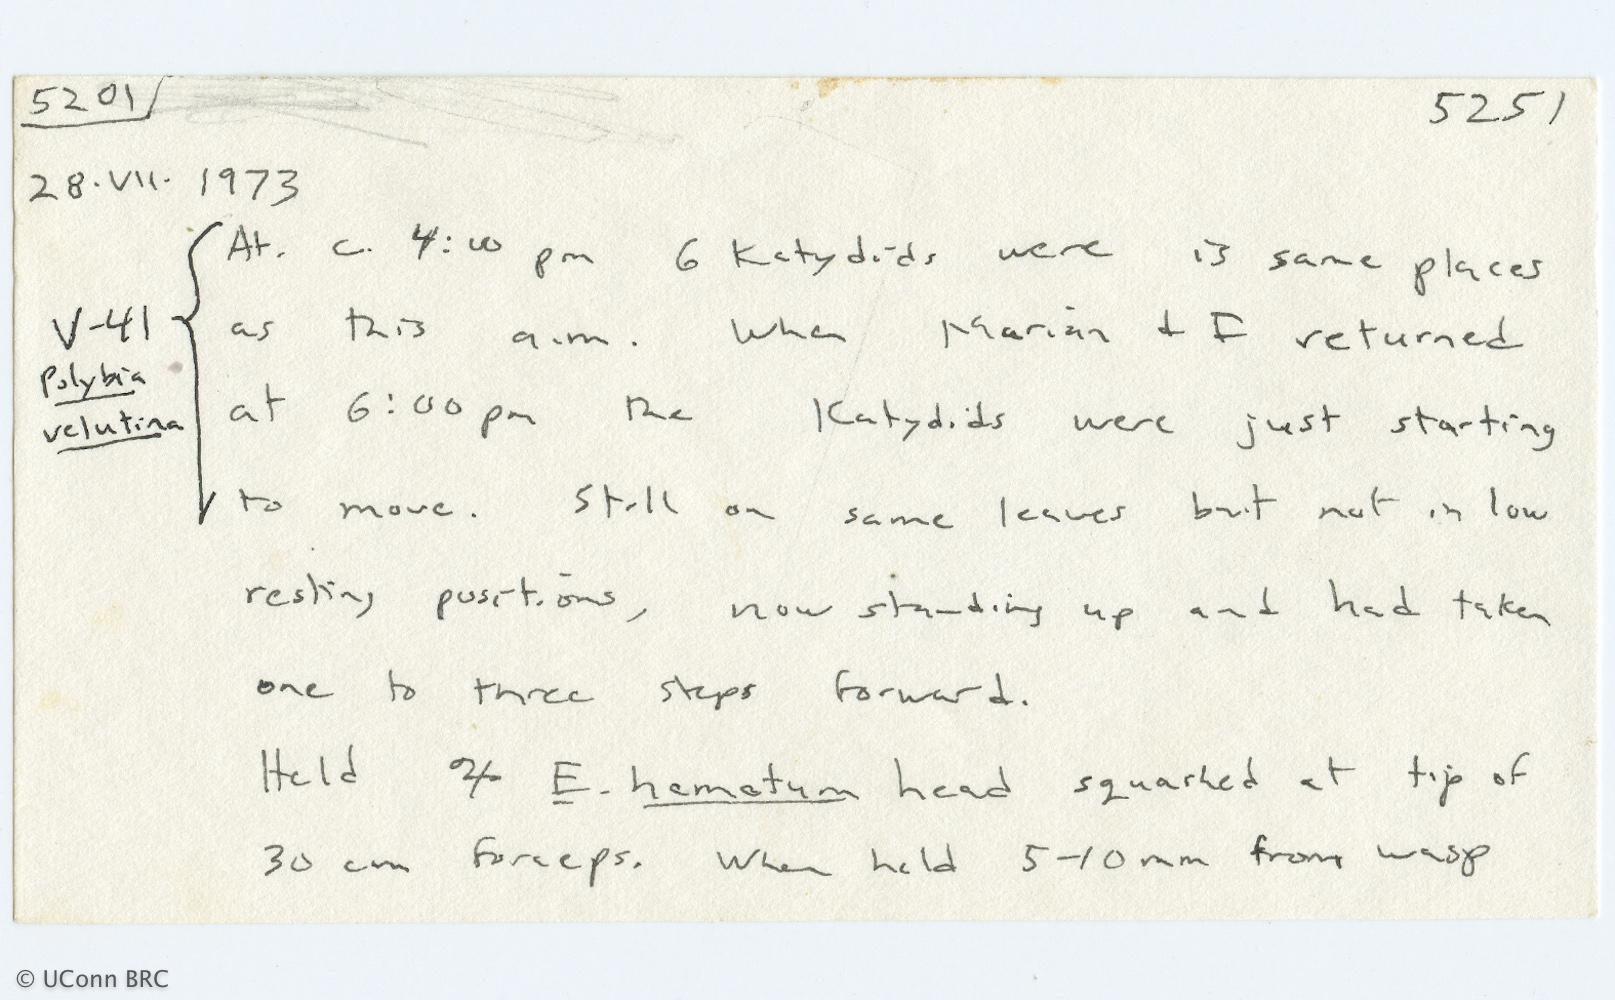 5201
5251
28.VII. 1973
At. c. 4:00 pm 6 Katydids were is same places
as this a.m. When Marian + I returned
V-41
Polybia
velutina
at 6:00 pm the Katydids were just starting
to move. Still on same leaves but not in low
resting positions, now standing up and had taken
one to three steps forward.
Held E. hamatum head squashed at tip of
30 cm forceps. When held 5-10 mm from wasp
© UConn BRC